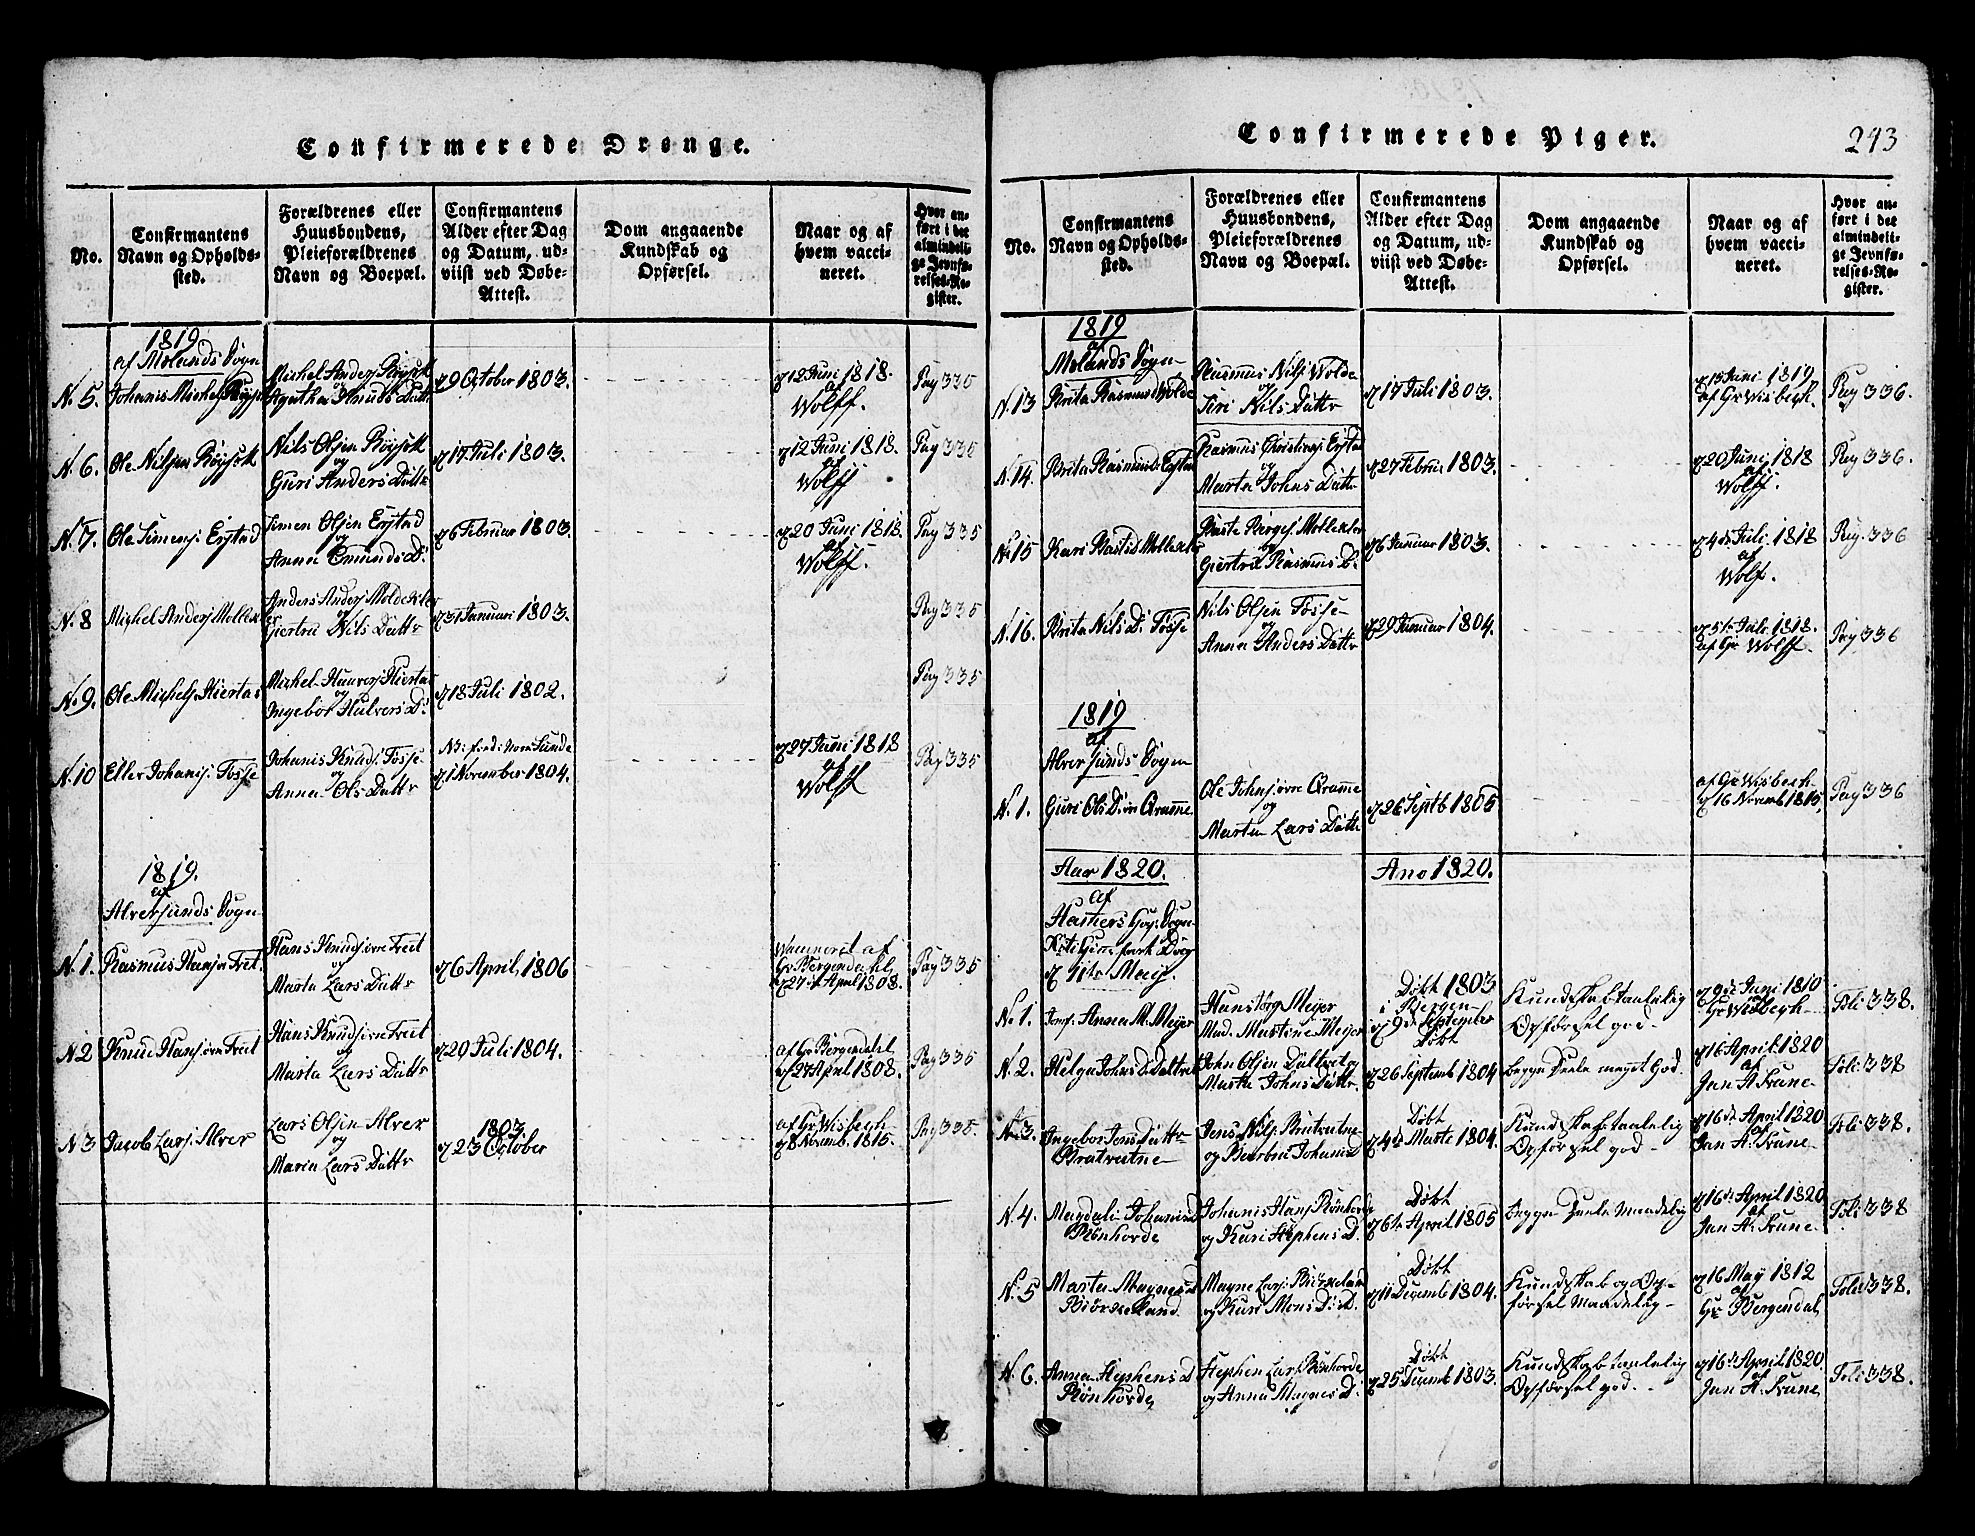 Confirmerede Drenge.
No.
Confirmantens
Navn og Opholds-
sted.
Forældrenes eller
Huusbondens,
Pleieforældrenes
Navn og Boepæl.
Confirmantens
Alder efter Dag
og Datum, ud-
viist ved Døbe-
Attest.
Dom angaaende
Kundskab og
Opførsel.
Naar og af
hvem vacci-
neret.
Hvor an-
ført i det
almindeli-
ge Jevnfø-
relses-Re-
gister.
1819
af Molands Sogn
N. 5.
Johanis Michels
Michel Anders
og
Agatha Knuds Dattr
9 October 1803.
12 Juni 1818.
af
Wolff.
Pag 335
N. 6.
Ole Nilsen
Nils Olsen
og
Guri Anders Dattr
17 Juli 1803.
12 Juni 1818.
af
Wolff
Pag 335
N. 7.
Ole Simens: Erstad
Simen Olsen Erstad
og
Anna Emunds D:
6 Februar 1803.
20 Juni 1818.
af
Wolff.
Pag 335
N. 8
Michel Anders
Anders Anders Moldekler
og
Giertru Nils Dattr
31 Januari 1803.
Pag 335
N. 9.
Ole Michels Hiertas
Michel Hiertas
og
Ingebor D:
18 Juli 1802.
Pag 335
N. 10
Eller Johanis: Fosse
Johanis Knuds: Fosse
og
Anna Ols Dattr
1 November 1804.
27 Juni 1818
af
Wolff
Pag 335
1819.
af
Alversunds Sogn
N. 1.
Rasmus Hans
Hans Knuds øvre
og
Marta Lars Dattr
6 April, 1806
af
Gr Bergendahl
27 April 1808.
Pag 335
N. 2
Knud Hans øvre
Hans Knuds øvre
og
Marta Lars Dattr
29 Juli 1804.
af Gr Bergendahl
27 April 1808.
Pag 335
N. 3
Jacob Lars: Alver
Lars Olsen Alver
og
Maria Lars Dattr
1803
23 October
af Gr Wisbegh
8 Novemb. 1815.
Pag 335.
Confirmerede Piger.
243
No.
Confirmantens
Navn og Opholds-
sted.
Forældrenes eller
Huusbondens,
Pleieforældrenes
Navn og Boepæl.
Confirmantens
Alder efter Dag
og Datum, ud-
viist ved Døbe-
Attest.
Dom angaaende
Kundskab og
Opførsel.
Naar og af
hvem vacci-
neret.
Hvor an-
ført i det
almindeli-
ge Jevnfø-
relses-Re-
gister.
1819
af
Molands Sogn
N. 13
Brita Rasmus Wolde
Rasmus Nils: Wolde
og
Siri Nils Dattr
17 Juli 1803.
15 Juni 1819
af Gr Wisbegh.
Pag 336.
N. 14.
Brita Rasmus: Erstad
Rasmus Christens: Erstad
og
Marta Johns Dattr
27 Februar 1803.
20 Juni 1818
af
Wolff.
Pag 336.
N. 15
Kari Bastes Mollekler
Baste Børges: Mollekler
og
Giertru Rasmus D:
6 Januar 1803.
4de Juli 1818
af
Wolf.
Pag. 336
N. 16.
Brita Nils D: Fosse
Nils Olsen Fosse
og
Anna Anders Dattr
29 Januar 1804.
5te Juli 1818.
af Gr Wolff
Pag 336
1819
af
Alversunds Sogen
N. 1.
Guri Ols D: øvre Qvamme
Ole Johns: øvre Qvamme
og
Marta Lars Dattr
26 Septb 1805
af Gr Wisbegh
16 Novemb 1815,
Pag 336
Aar 1820.
af
Hammers Sogn
11te Maij.
Ano 1820.
N. 1.
Jomf: Anna M. Meijer
Hans Jørg Meijer
Mad. Martine Meijer
Døbt 1803
i Bergen
9de September
Kundskab taalelig
Opførsel god
9de Juni 1810
Gr Wisbegh
Foli 338.
N. 2.
Helga Johns D Daltveit
John Olsen Daltveit og
Marta Johns Dattr.
Døbt
26 Septemb 1804
begge Deele meget God.
16 April 1820
af
Jan A. Frune
Foli: 338
N. 3.
Ingebor Jens Dattr
Bratveitne
Jens Nils: Bratveitne
og Barbra Johanis D
Døbt
4de Marts 1804.
Kundskab taalelig
Opførsel god
16de April 1820
af
Jan A. Frune
Foli 338.
N. 4.
Magdali Johanis D
Rønhovde
Johanis Hans: Rønhovde
og Kari Stephens D.
Døbt
6te April 1805
begge Deele Maadelig
16de April 1820
af
Jan A. Frune
Foli 338
N. 5
Marta Magnes D
Biørneland.
Magne Lars: Biørneland
og Kari Mons Dr D.
Døbt
11 Decemb 1804.
Kundskab og Op-
førsel Maadelig
16 May 1812
af
Gr Bergendal,
Foli 338.
N. 6.
Anna Stephens D
Rønhovde
Stephen Lars: Rønhovde
og Anna Magnes D:
Døbt
25 Decemb 1803.
Kundskab taalelig
Opførsel god.
16de April 1820.
af
Jan A. Frune
Foli 338.